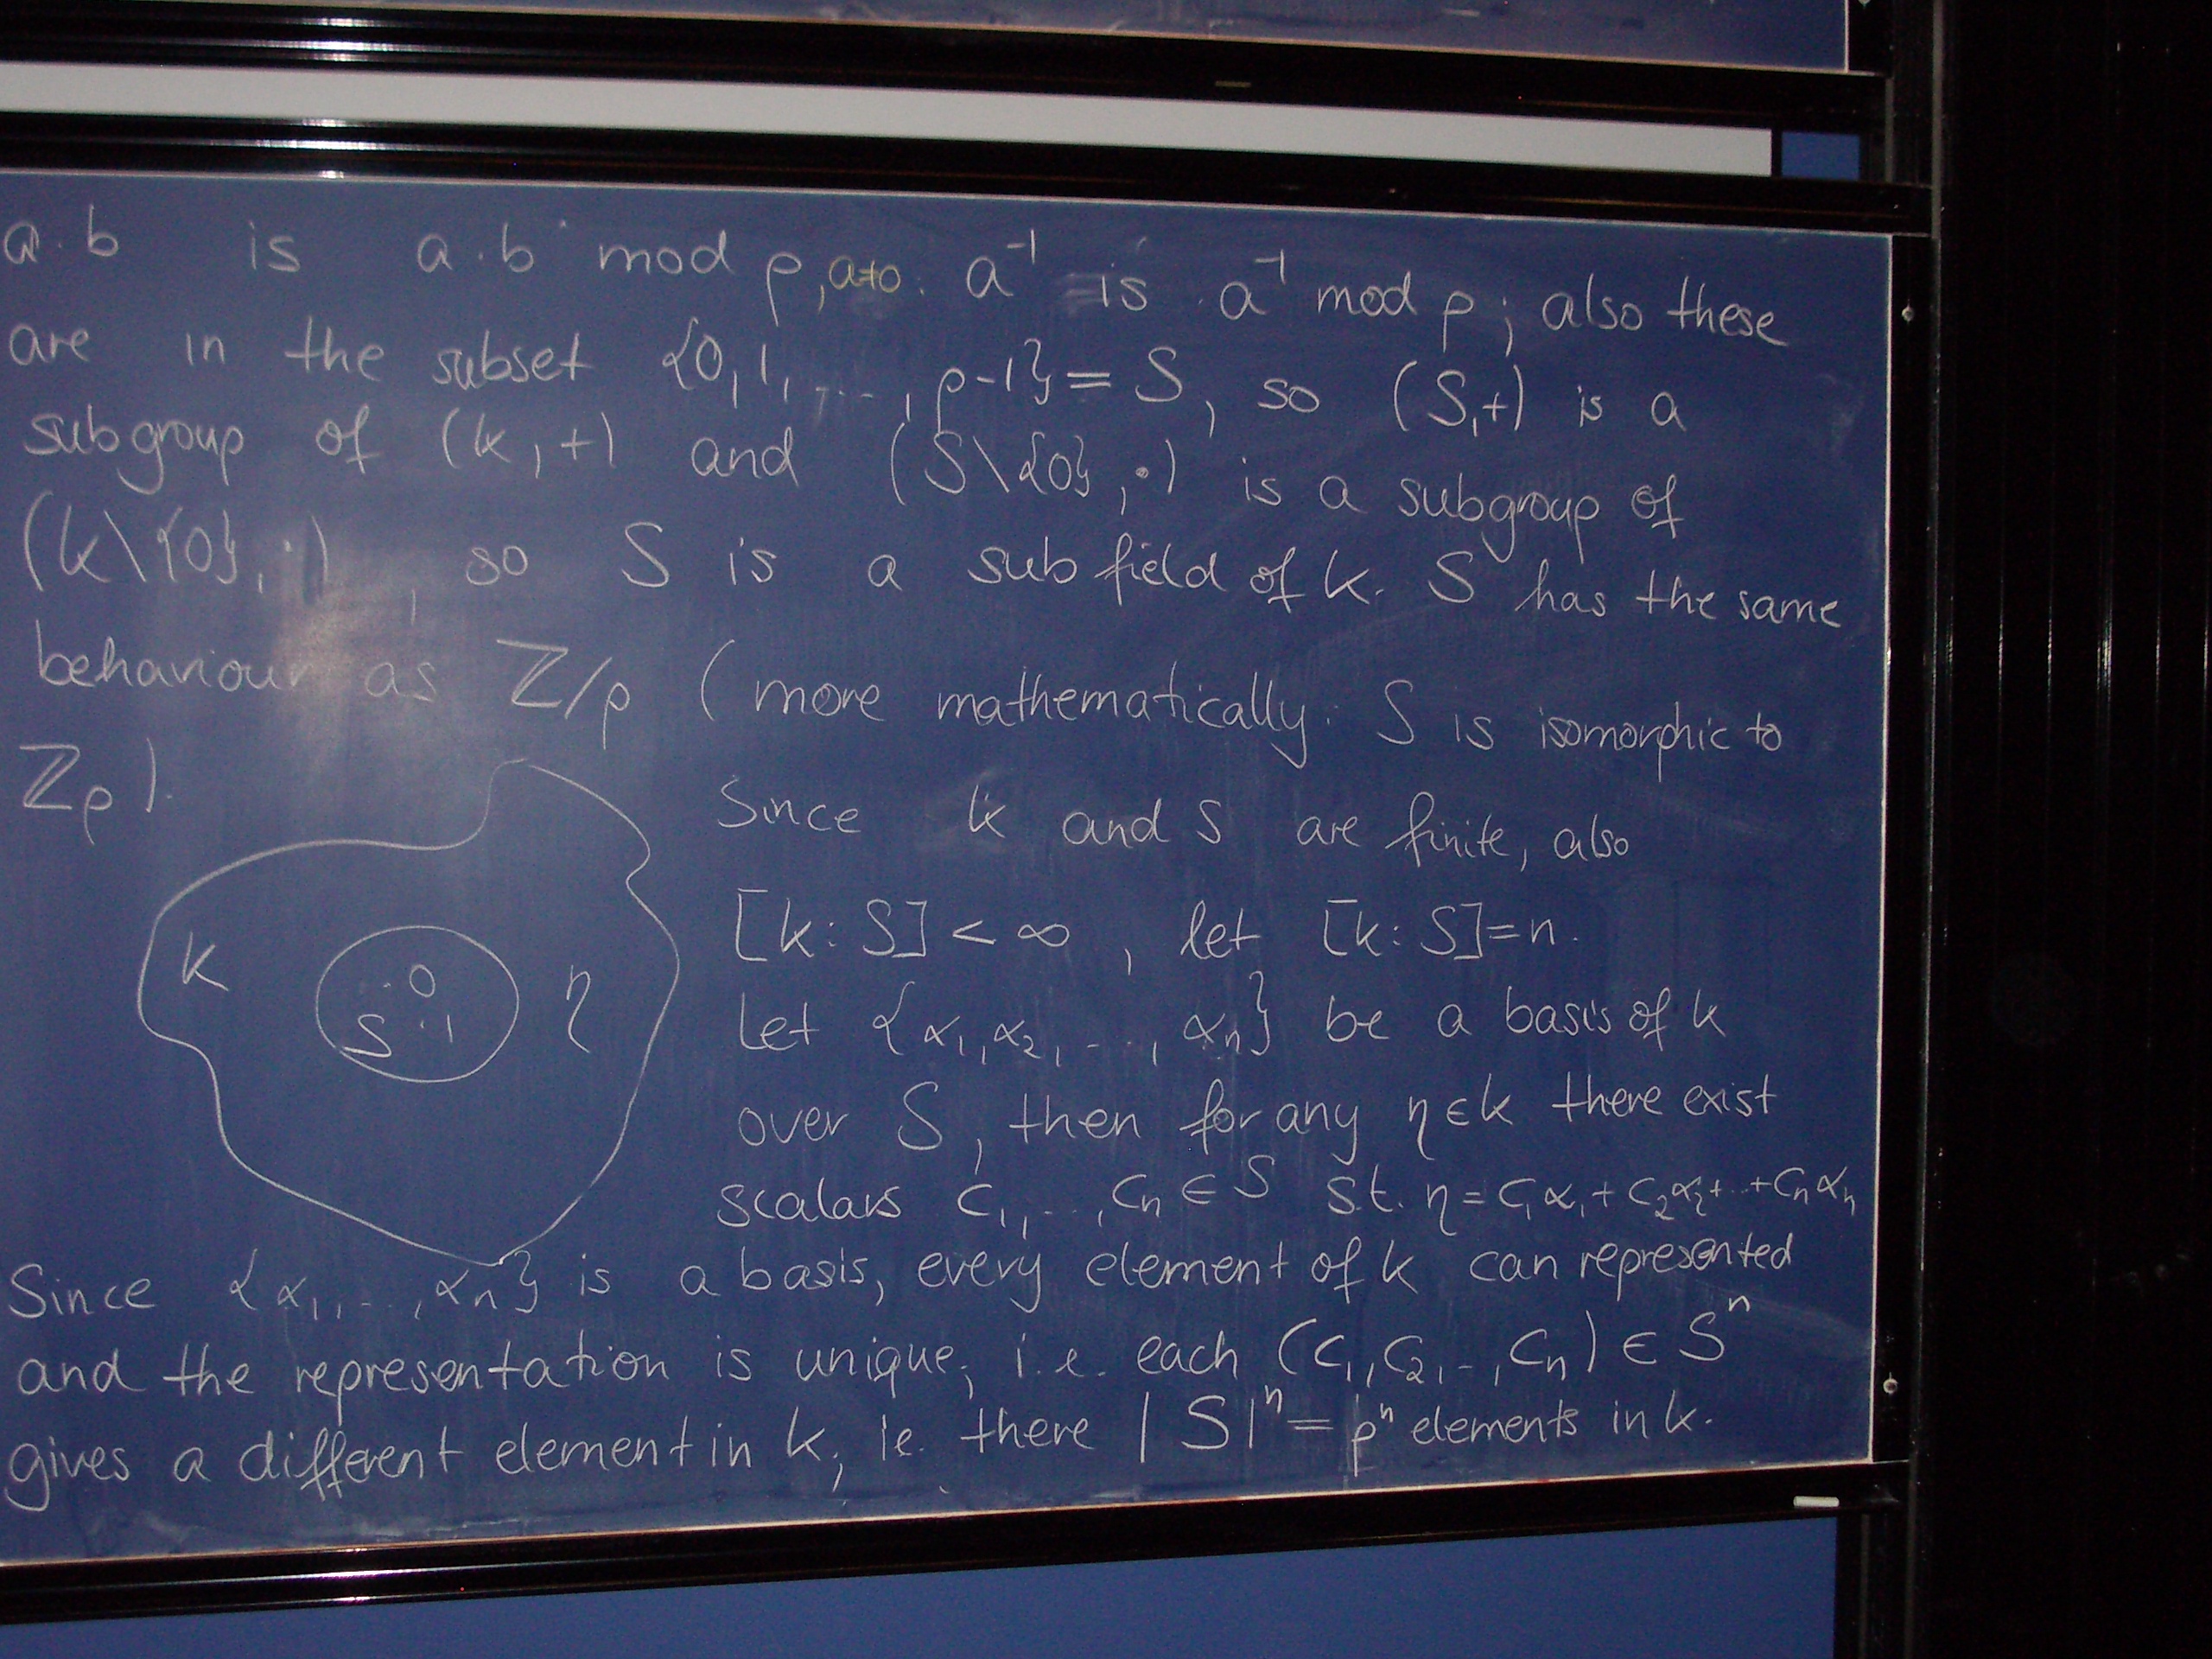 a·b is a·b mod p, a≠0. a⁻¹ is a⁻¹ mod p; also these
are in the subset {0,1,...,p-1}=S, so (S,+) is a
subgroup of (k,+) and (S\{0},·) is a subgroup of
(k\{0},·), so S is a subfield of k. S has the same
behaviour as ℤ/p (more mathematically: S is isomorphic to
ℤp).
k
0
S 1
η
Since k and S are finite, also
[k:S]<∞, let [k:S]=n.
Let {α₁,α₂,...,αₙ} be a basis of k
over S, then for any η∈k there exist
scalars c₁,...,cₙ∈S s.t. η=c₁α₁+c₂α₂+..+cₙαₙ
Since {α₁,...,αₙ} is a basis, every element of k can represented
and the representation is unique, i.e. each (c₁,c₂,..,cₙ)∈Sⁿ
gives a different element in k, ie. there |S|ⁿ=pⁿ elements in k.